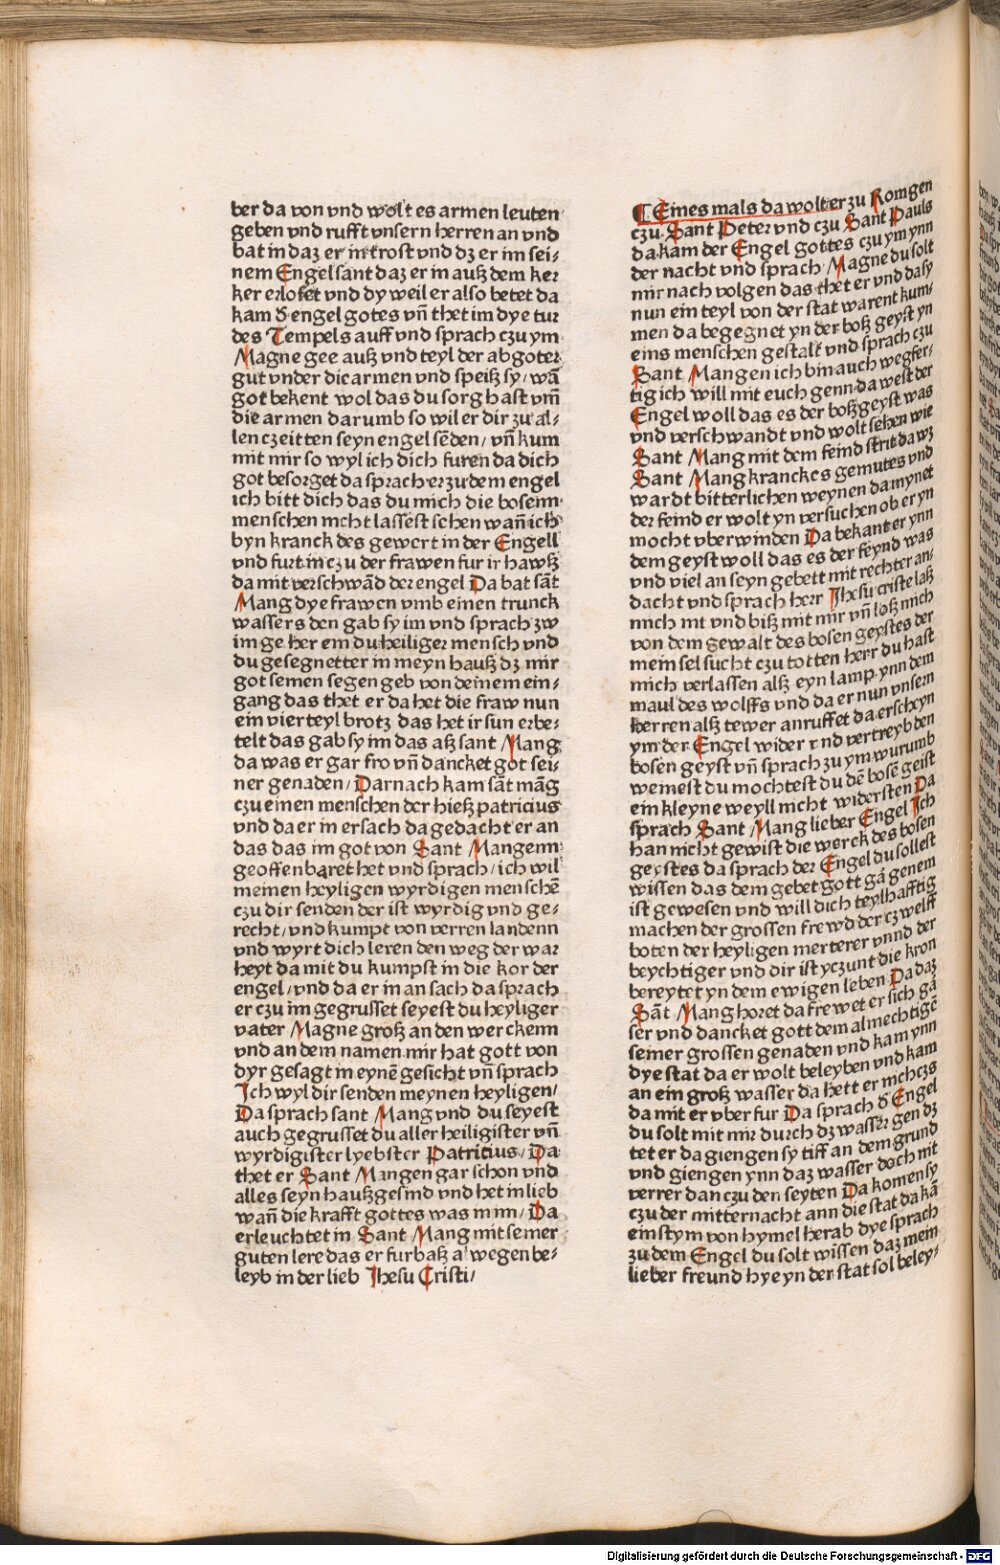 ber da von vnd wolt es armen leuten
geben vnd rufft vnsern herren an vnd
bat in daz er in trost vnd dz er im sei⸗
nem Engel sant daz er in auß dem ker
ker erloset vnd dy weil er also betet da
kam d̕ engel gotes vn̄ thet im dye tur
des Tempels auff vnd sprach czu ym
Magne gee auß vnd teyl der abgoter
gut vnder die armen vnd speiß sy / wā
got bekent wol das du sorg hast vm̄
die armen darumb so wil er dir zu al⸗
len czeitten seyn engel sēden / vn̄ kum
mit mir so wyl ich dich furen da dich
got besorget da sprach er zu dem engel
ich bitt dich das du mich die bosenn
menschen nicht lassest sehen wan̄ ich
byn kranck des gewert in der Engell
vnd furt in czu der frawen fur ir hawß
da mit verschwād der engel Da bat sāt
Mang dye frawen vmb einen trunck
wassers den gab sy im vnd sprach zw
im ge her ein du heiliger mensch vnd
du gesegnetter in meyn hauß dz mir
got seinen segen geb von deinem ein⸗
gang das thet er da het die fraw nun
ein vierteyl brotz das het ir sun erbe⸗
telt das gab sy im das aß sant Mang
da was er gar fro vn̄ dancket got sei⸗
ner genaden / Darnach kam sāt māg
czu einen menschen der hieß patricius
vnd da er in ersach da gedacht er an
das das im got von Sant Mangenn
geoffenbaret het vnd sprach / ich wil
meinen heyligen wyrdigen menschē
czu dir senden der ist wyrdig vnd ge⸗
recht / vnd kumpt von verren landenn
vnd wyrt dich leren den weg der war
heyt da mit du kumpst in die kor der
engel / vnd da er in an sach da sprach
er czu im gegrusset seyest du heyliger
vater Magne groß an den werckenn
vnd an dem namen mir hat gott von
dyr gesagt in eynē gesicht vn̄ sprach
Ich wyl dir senden meynen heyligen /
Da sprach sant Mang vnd du seyest
auch gegrusset du aller heiligister vn̄
wyrdigister lyebster Patricius / Da
thet er Sant Mangen gar schon vnd
alles seyn haußgesind vnd het in lieb
wan̄ die krafft gottes was in im / Da
erleuchtet in Sant Mang mit seiner
guten lere das er furbaß a wegen be⸗
leyb in der lieb Jhesu Cristi /
¶ Eines mals da wolt er zu Rom gen
czu Sant Peter vnd czu Sant Pauls
da kam der Engel gottes czu ym ynn
der nacht vnd sprach Magne du solt
mir nach volgen das thet er vnd da sy
nun ein teyl von der stat warent kum⸗
men da begegnet yn der boß geyst yn
eins menschen gestalt vnd sprach czu
Sant Mangen ich bin auch wegfer⸗
tig ich will mit euch genn da west der
Engel woll das es der boß geyst was
vnd verschwandt vnd wolt sehen wie
Sant Mang mit dem feind strit da wz
Sant Mang kranckes gemutes vnd
wardt bitterlichen weynen da mynet
der feind er wolt yn versuchen ob er yn
mocht vberwinden Da bekant er ynn
dem geyst woll das es der feynd was
vnd viel an seyn gebett mit rechter an⸗
dacht vnd sprach herr Jhesu criste laß
mich nit vnd biß mit mir vn̄ loß mich
von dem gewalt des bosen geystes der
mein sel sucht czu totten herr du hast
mich verlassen alß eyn lamp ynn dem
maul des wolffs vnd da er nun vnsern
herren alß tewer anruffet da erscheyn
ym der Engel wider vnd vertreyb den
bosen geyst vn̄ sprach zu ym wurumb
weinest du mochtest du dē bosē geist
ein kleyne weyll nicht widersten Da
sprach Sant Mang lieber Engel Ich
han nicht gewist die werck des bosen
geystes da sprach der Engel du sollest
wissen das dem gebet gott gā genem
ist gewesen vnd will dich teylhafftig
machen der grossen frewd der czwelff
boten der heyligen merterer vnnd der
beychtiger vnd dir ist yczunt die kron
bereytet yn dem ewigen leben Da daz
Sāt Mang horet da frewet er sich gā
ser vnd dancket gott dem almechtigē
seiner grossen genaden vnd kam ynn
dye stat da er wolt beleyben vnd kam
an ein groß wasser da hett er nichczs
da mit er vber fur Da sprach d̕ Engel
du solt mit mir durch dz wasser gen dz
tet er da giengen sy tiff an dem grund
vnd giengen ynn daz wasser doch nit
verrer dan czu den seyten Da komen sy
czu der mitternacht ann die stat da kā
ein stym von hymel herab dye sprach
zu dem Engel du solt wissen daz mein
lieber freund hye yn der stat sol beley⸗
Digitalisierung gefördert durch die Deutsche Forschungsgemeinschaft - DFG